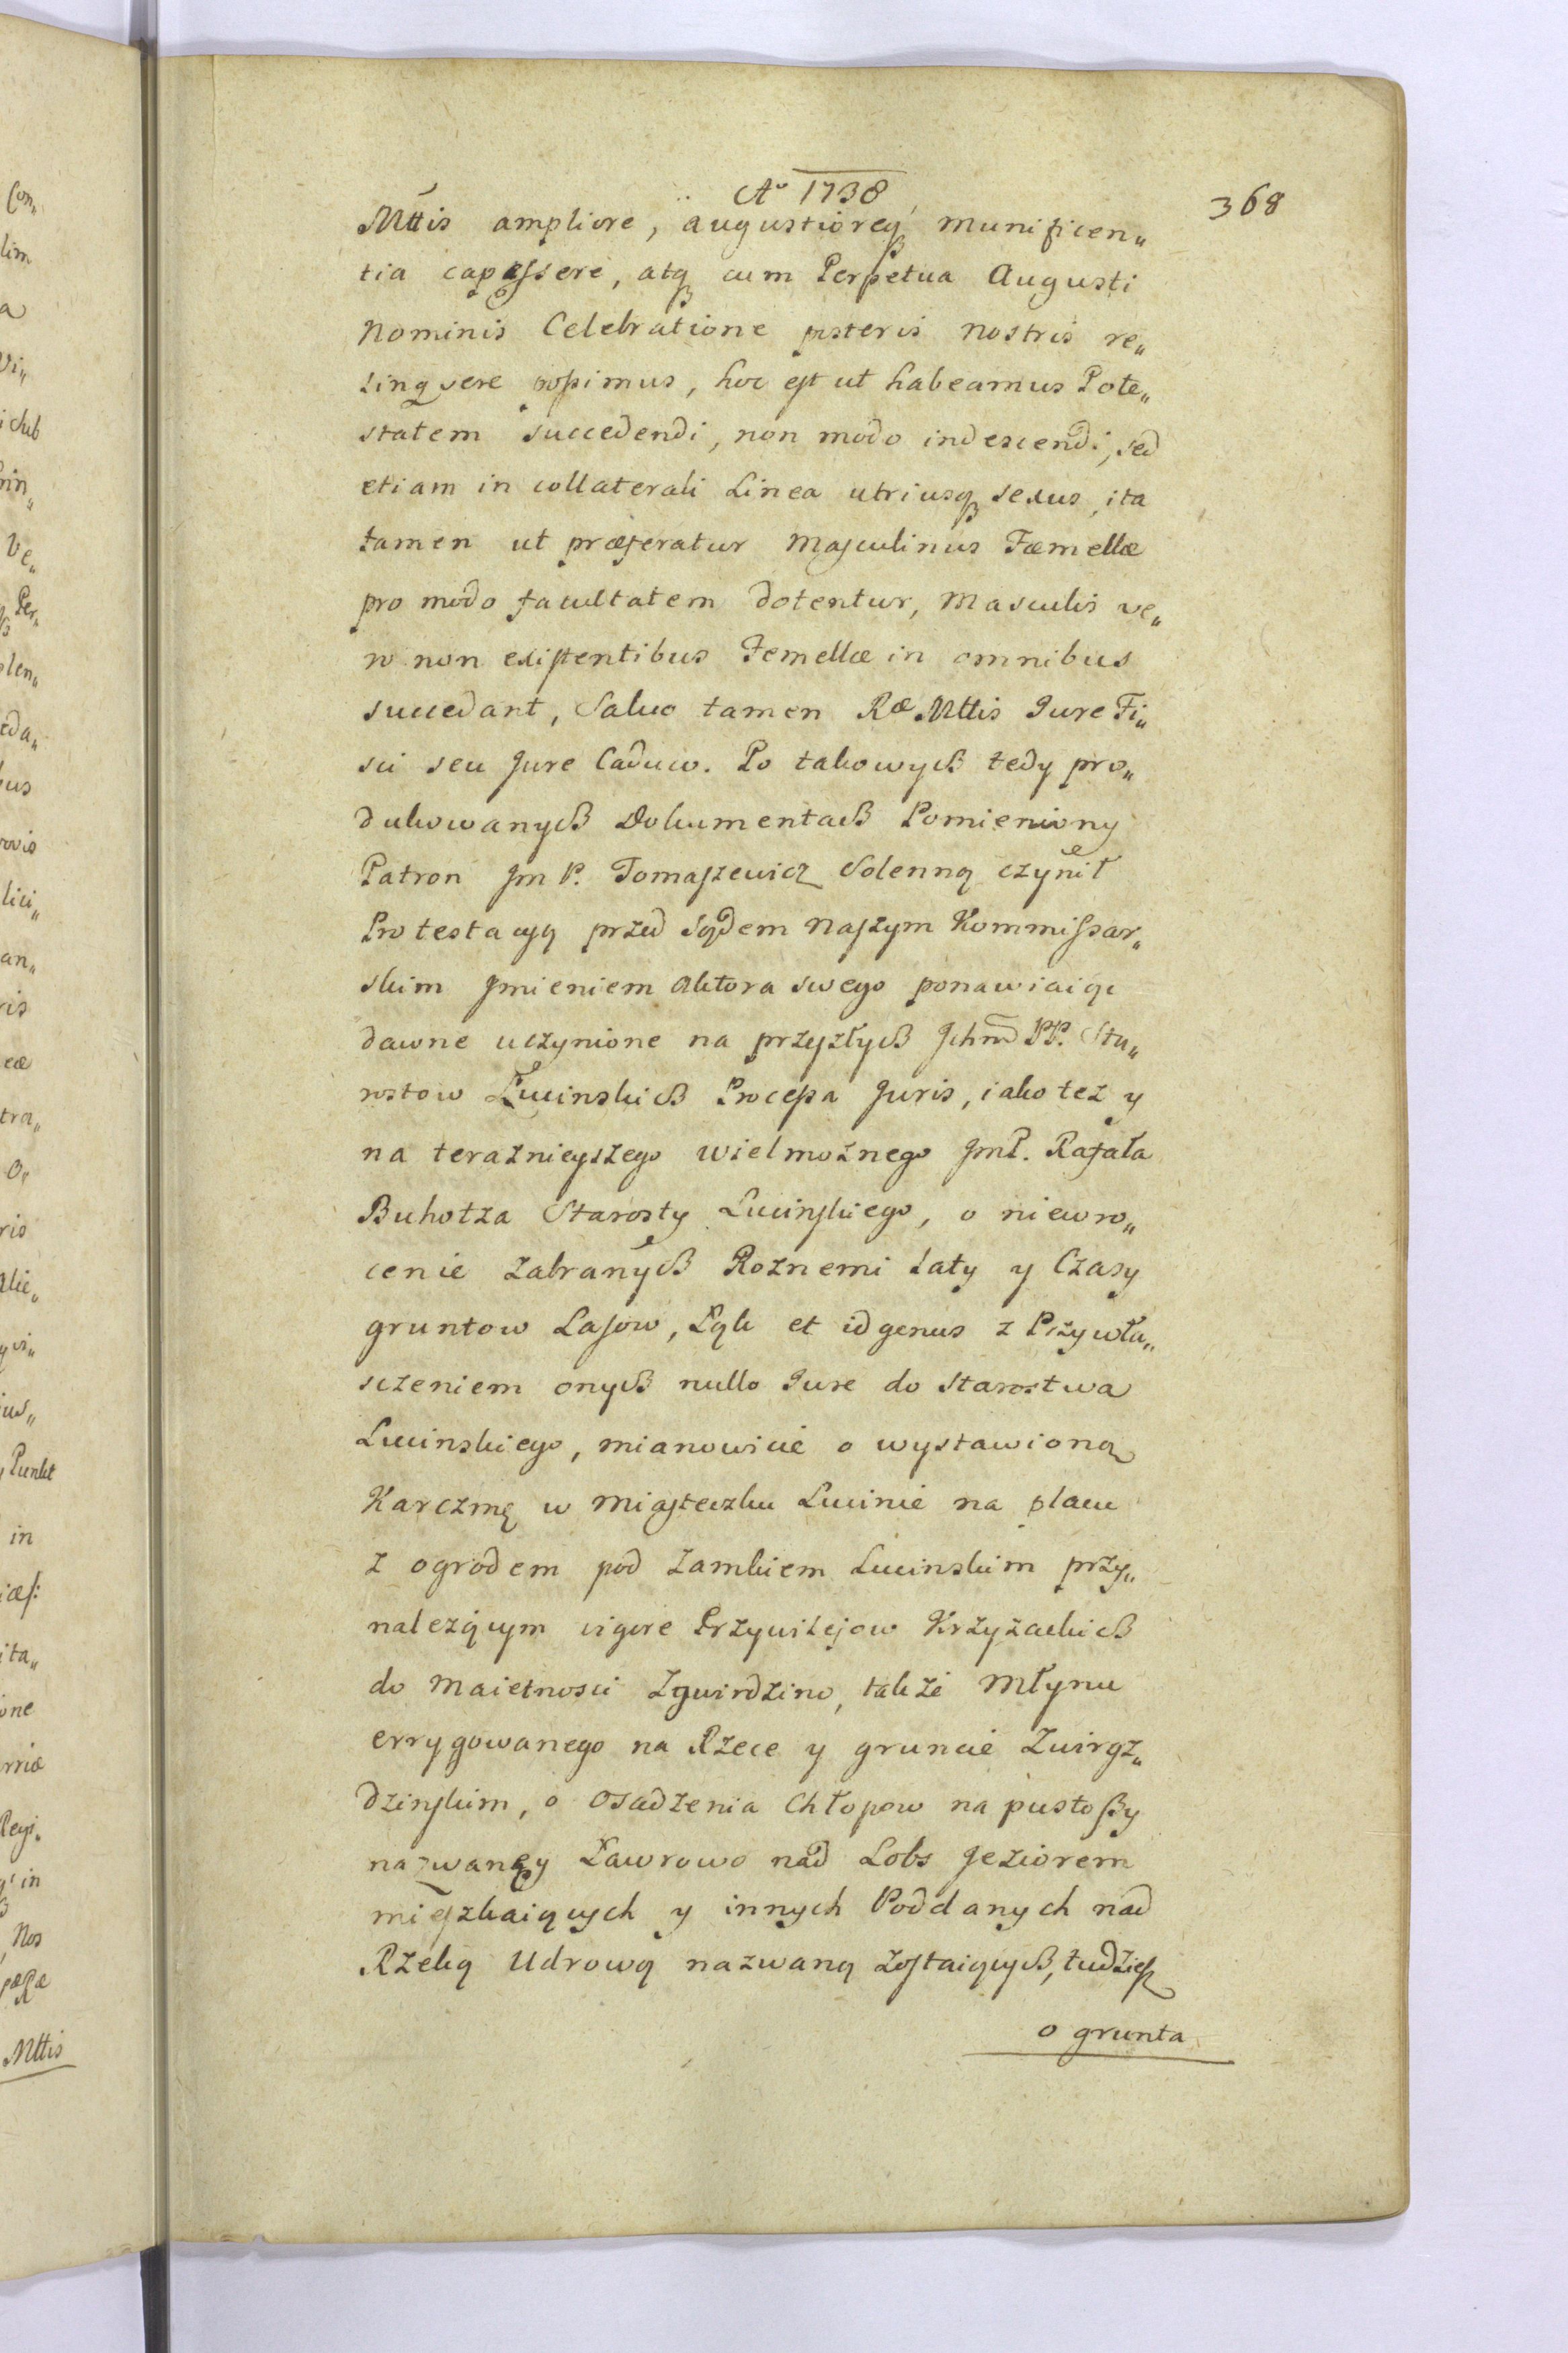 Ao 1738
368
Mttis ampliore, augustioreq munificen„
tia capessere, atq cum Perpetua Augusti
Nominis Celebratione posteris nostris re„
linqvere possimus, hoc est ut habeamus Pote„
statem succedendi, non modo indescendi, sed
etiam in collaterali Linea utriusq sexus, ita
tamen ut præferatur Masculinus Fæmellæ
pro modo facultatem dotentur, Masculis ve„
ro non existentibus Femellæ in omnibus
succedant, Salvo tamen Ræ Mttis Jure Fi„
sci seu Jure Caduco. Po takowych tedy pro„
dukowanych Dokumentach Pomieniony
Patron Jm P. Tomaszewicz Solenną czynił
Protestacyą przed Sądem Naszym Kommissar„
skim Jmieniem Aktora swego ponawiaiąc
dawne uczynione na przyszłych Jchm PP. Sta„
rostow Lucinskich Procesa Juris, iako też y
na teraznieyszego Wielmożnego JmP. Rafała
Buhotza Starosty Lucinskiego, o niewro„
cenie zabranych Roznemi Laty y Czasy
gruntow Lasow, Łąk et id genus z Przywła„
sczeniem onych nullo Jure do Starostwa
Lucinskiego, mianowicie o wystawioną
Karczmę w Miasteczku Lucinie na placu
z ogrodem pod Zamkiem Lucinskim przy„
należącym vigore Przywilejow Krzyżackich
do Maiętnosci Zgwirdzino, także Młynu
errygowanego na Rzece y gruncie Zwirgz„
dzinskim, o Osadzenia Chłopow na pustoszy
nazwaney Ławrowo nad Lobs Jeziorem
mięszkaiących y innych Poddanych nad
Rzeką Udrową nazwaną zostaiących, tudziesz
o grunta